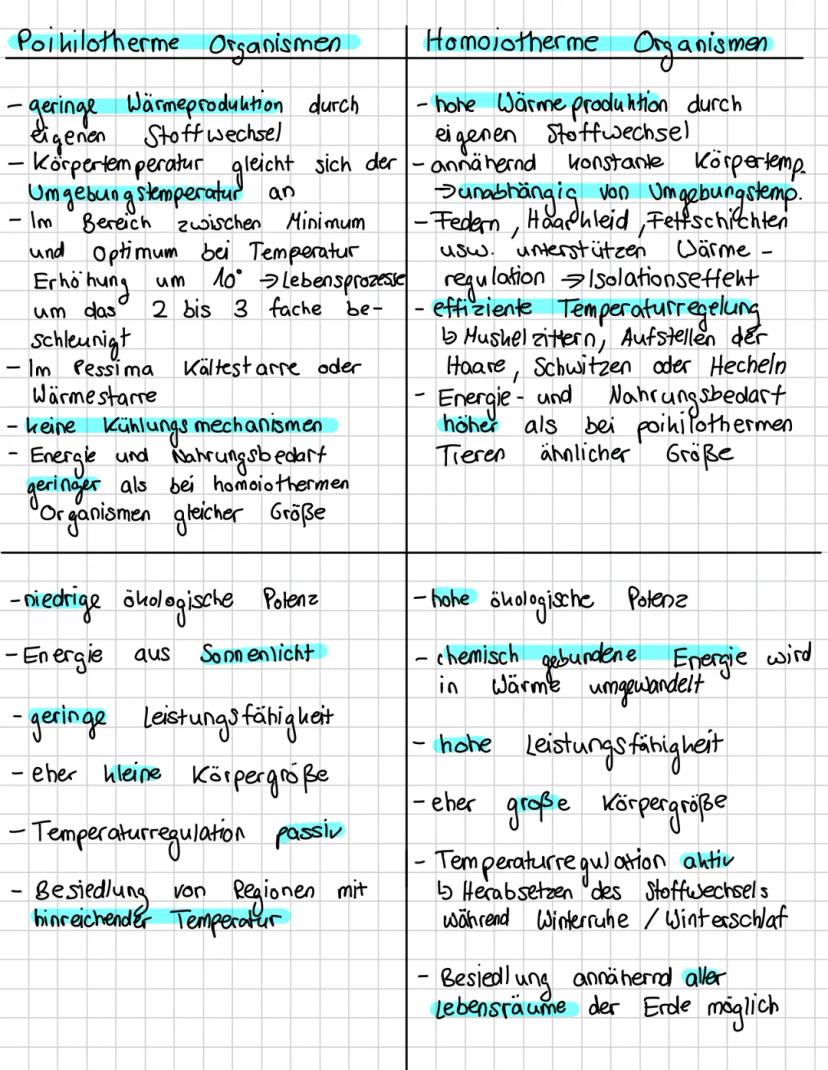 Poikilotherme Organismen
- geringe Wärmeproduktion durch
eigenen Stoffwechsel
- Körpertemperatur gleicht sich der
Umgebungstemperatur an
- Im Bereich zwischen Minimum
und Optimum bei Temperatur
Erhöhung um 10° → Lebensprozesse
um das 2 bis 3 fache be-
schleunigt
- Im Pessima Kältestarre oder
Wärmestarre
- keine Kühlungsmechanismen
- Energie und Nahrungsbedarf
geringer als bei homoiothermen
Organismen gleicher Größe
Homoiotherme Organismen
- hohe Wärmeproduktion durch
eigenen Stoffwechsel
- annähernd konstante Körpertemp.
→ unabhängig von Umgebungstemp.
- Federn, Haarkleid, Fettschichten
usw. unterstützen Wärme-
regulation → Isolationseffekt
- effiziente Temperaturregelung
↳ Muskelzittern, Aufstellen der
Haare, Schwitzen oder Hecheln
- Energie- und Nahrungsbedarf
höher als bei poikilothermen
Tieren ähnlicher Größe
- niedrige ökologische Potenz
- Energie aus Sonnenlicht
- geringe Leistungsfähigkeit
- eher kleine Körpergröße
- Temperaturregulation passiv
- Besiedlung von Regionen mit
hinreichender Temperatur
- hohe ökologische Potenz
- chemisch gebundene Energie wird
in Wärme umgewandelt
- hohe Leistungsfähigkeit
- eher große Körpergröße
- Temperaturregulation aktiv
↳ Herabsetzen des Stoffwechsels
während Winterruhe / Winterschlaf
- Besiedlung annähernd aller
Lebensräume der Erde möglich